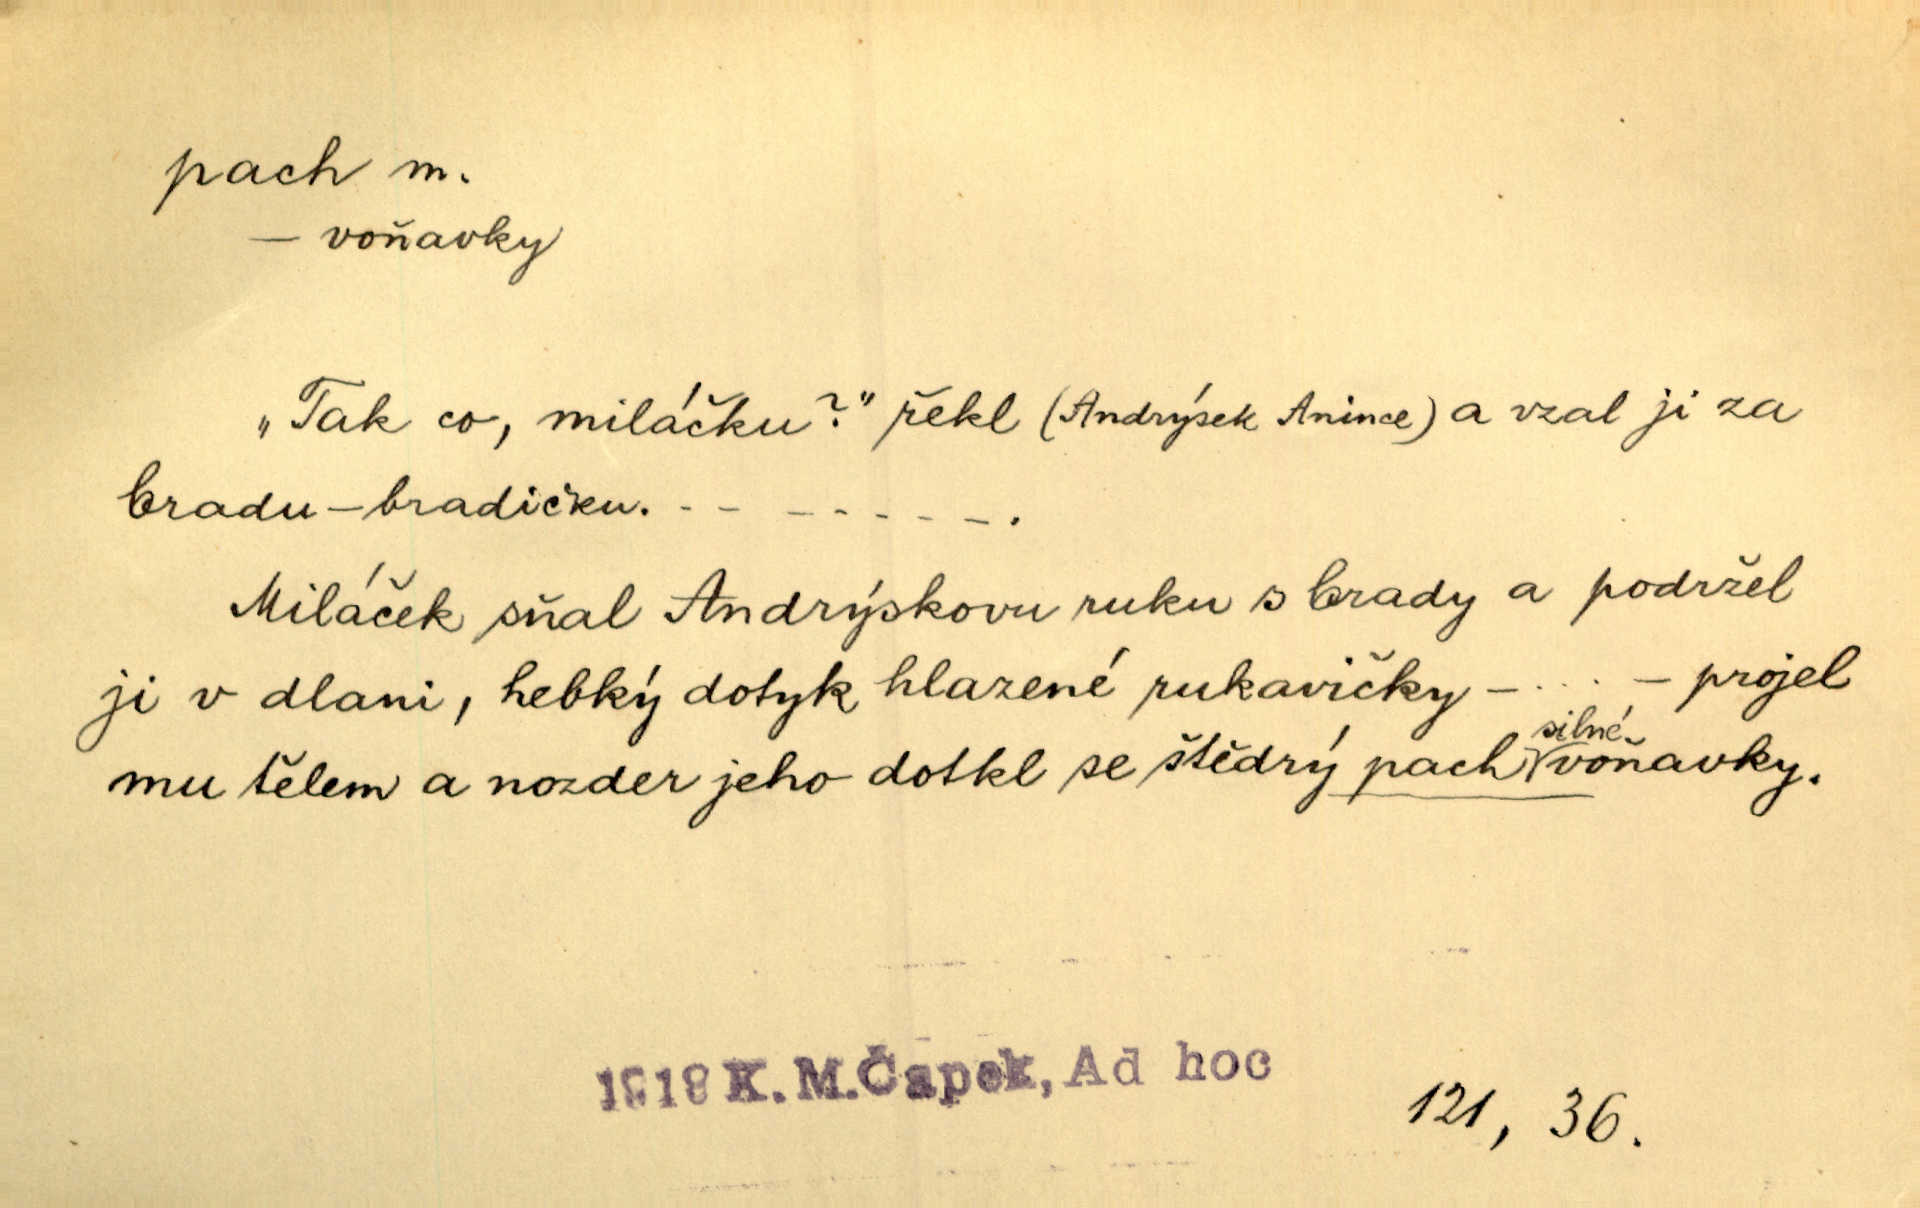 pach m.
– voňavky
„Tak co, miláčku?" řekl (Andrýsek Anince) a vzal ji za
bradu – bradičku. - - - - - - - - .
Miláček sňal Andrýskovu ruku s brady a podržel
ji v dlani, hebký dotyk hlazené rukavičky – . . . – projel
mu tělem a nozder jeho dotkl se štědrý pach silné voňavky.
1918 K. M. Čapek, Ad hoc
121, 36.